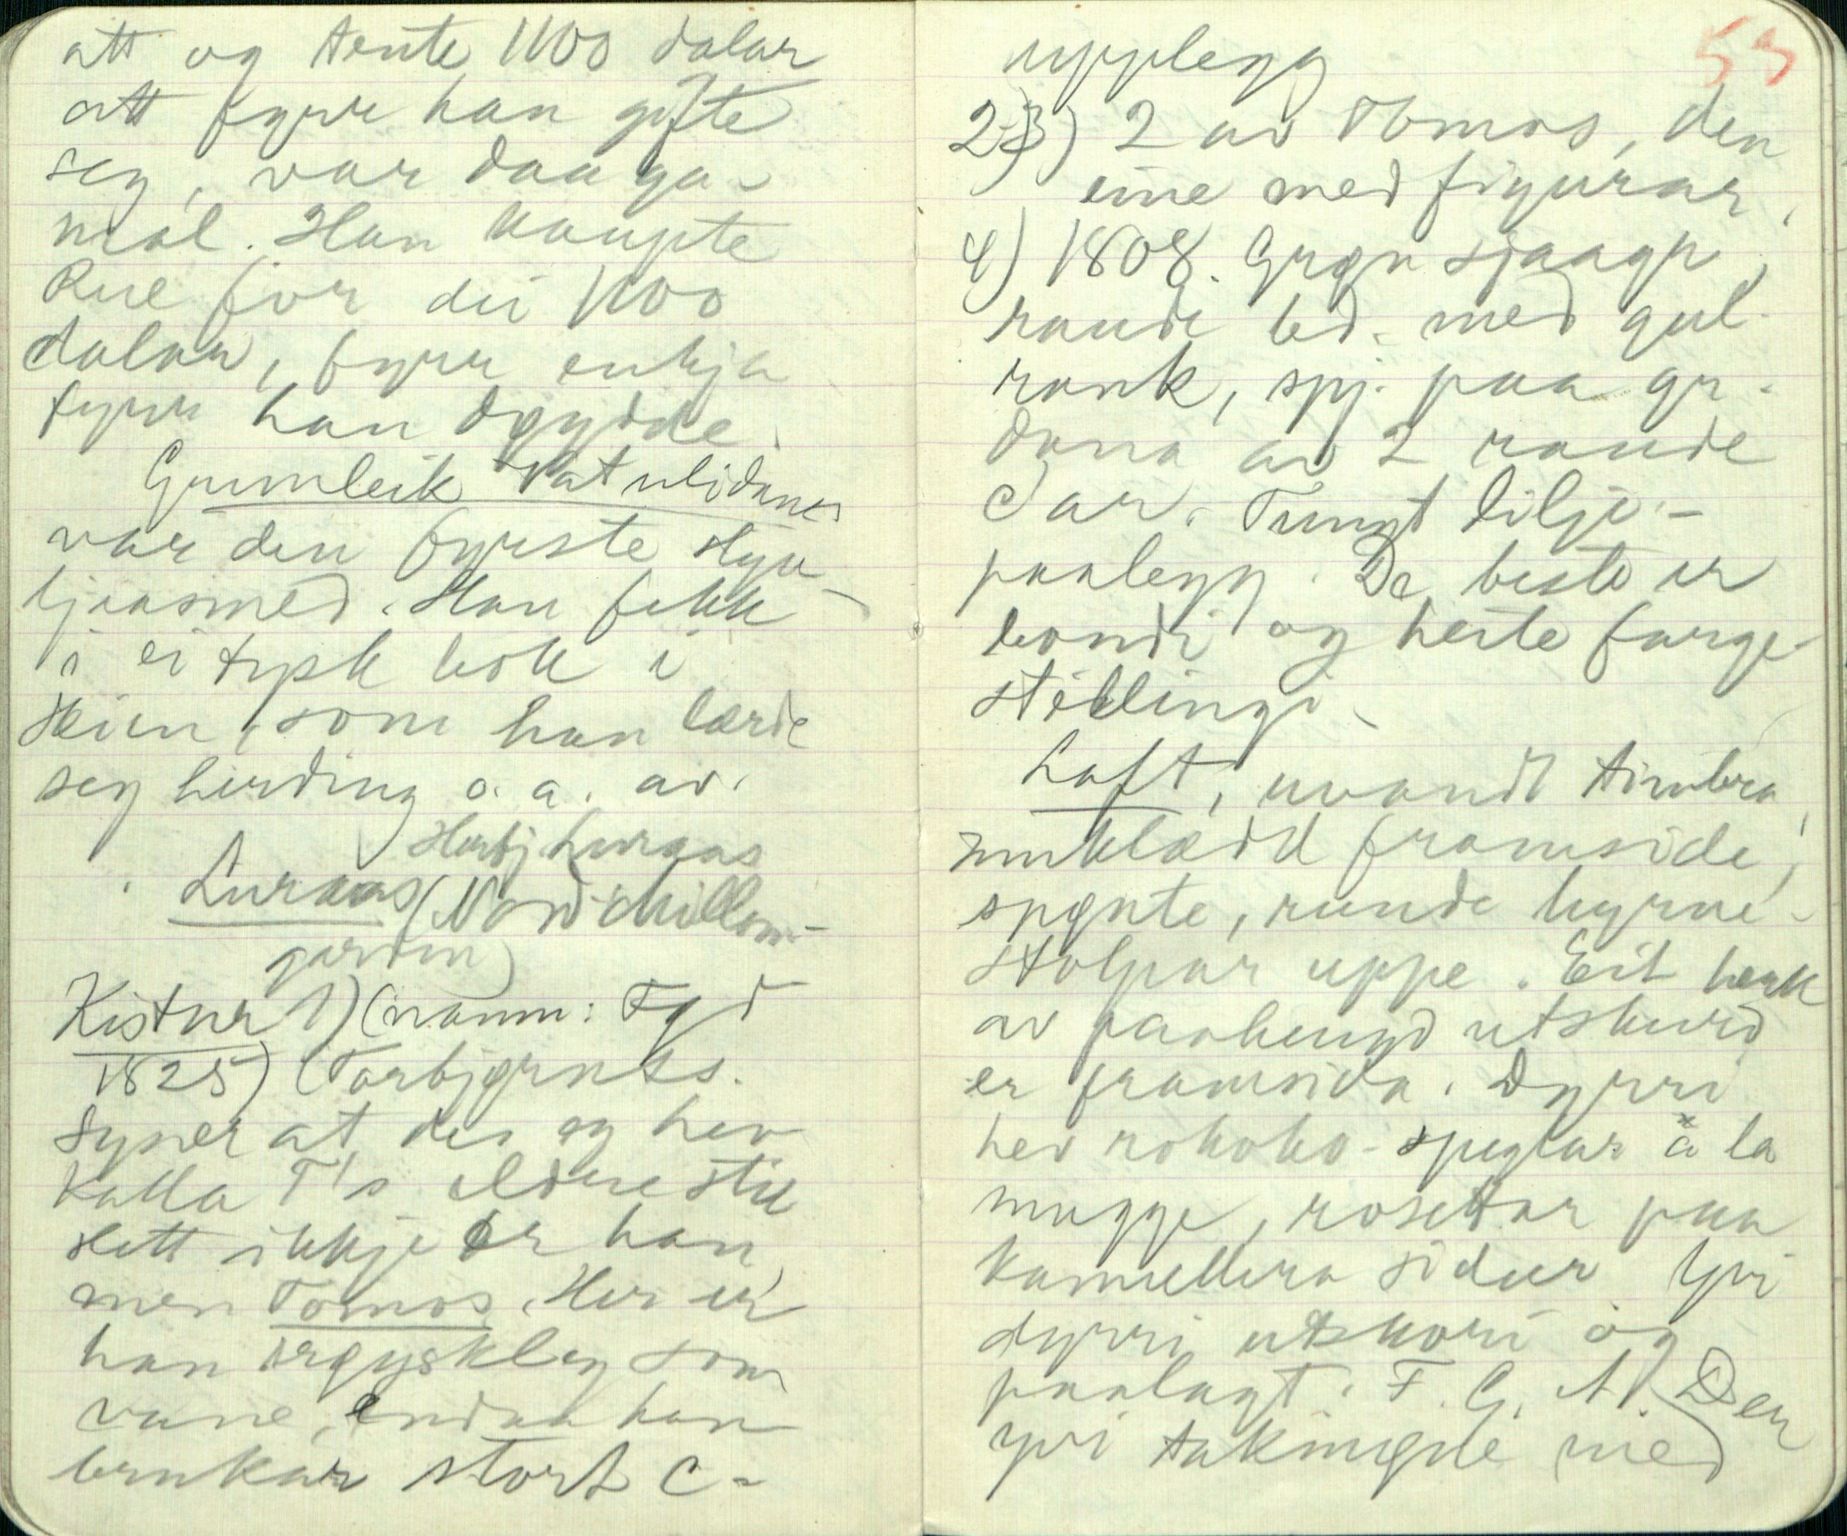 att og tente 1100 dalar
att fyrr han gifte
seg, var daa ga-
mal. Han kaupte
Rue for dei 1100
dalar, fyrr enkja
fyrr han døydde.
Gunnleik Vatnlidane
var den fyrste Hyu-
smed. Han fekk
i ei tysk bok i
Skien, som han lærde
seg herding o. a. av.
Herbj Luraas
Luraas (Nord-Millom-
garden)
Kistur 1) (namn: Fød
1825) (Torbjørnks.
Syner at dei eg hev
kalla T's eldre stil
slett ikkje er han
men Tomos. Her er
han irgyskleg som
vane, endaa han
brukar stort C-
53
upplegg
2-3) 2 av Tomos, den
eine med figurar,
4) 1808. Grøn sjaagr,
raude bd. med gul
rank, spj. paa gr.
dana av 2 raude
C ar. Tungt lilje-
paalegg. Da beste er
bondi og heile farge-
stellingi.
Loft, uvandt timbra,
umklædd framside,
spønte, runde hyrne-
stolpar uppe. Eit verk
av paahengd utskurd
er framsida. Dyrri
hev rokoko-speglar à la
mugge, rosettar paa
kannellera sidur. Yvi
dyrri utskori og
paalagt. F. G. A. Den
yvi med